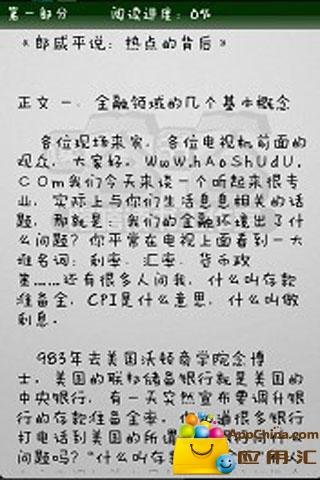 第一部分 阅读进度：0%
《郎咸平说：热点的背后》
正文 一、金融领域的几个基本概念
各位现场来宾，各位电视机前面的
观众，大家好。WwW.hAoShUdU.
COm我们今天来谈一个听起来很专
业，实际上与你们生活息息相关的话
题，那就是：我们的金融环境出了什
么问题？你平常在电视上面看到一大
堆名词：利率、汇率、货币政
策……还有很多人问我，什么叫存款
准备金，CPI是什么意思，什么叫做
利息。
983年去美国沃顿商学院念博
士，美国的联邦储备银行就是美国的
中央银行，有一天突然宣布要调升银
行的存款准备金率，你 道很多银行
打电话到美国的所谓
问题吗？"什么叫存款
AppChina.com
应用汇